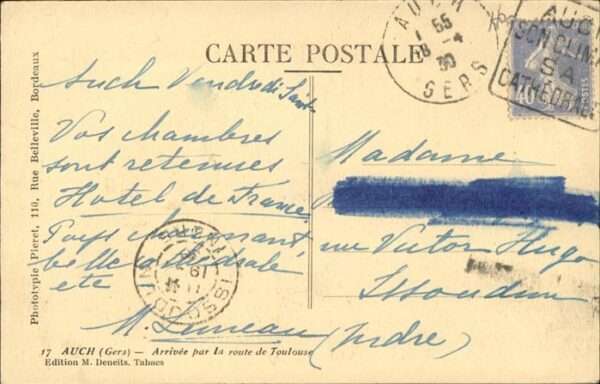 CARTE POSTALE
AUCH
GERS
18-4
30
AUCH
SON CLIMAT
SA
CATHÉDRALE
40
POSTES
Auch Vendredi Saint
Vos chambres
sont retenues
Hotel de France
Pays charmant
belle cathédrale
etc
M. Luneau
Madame
rue Victor Hugo
Issoudun
(Indre)
ISSOUDUN
Phototypie Pieret, 110, Rue Belleville, Bordeaux
17 AUCH (Gers) — Arrivée par la route de Toulouse
Edition M. Deneits. Tabacs